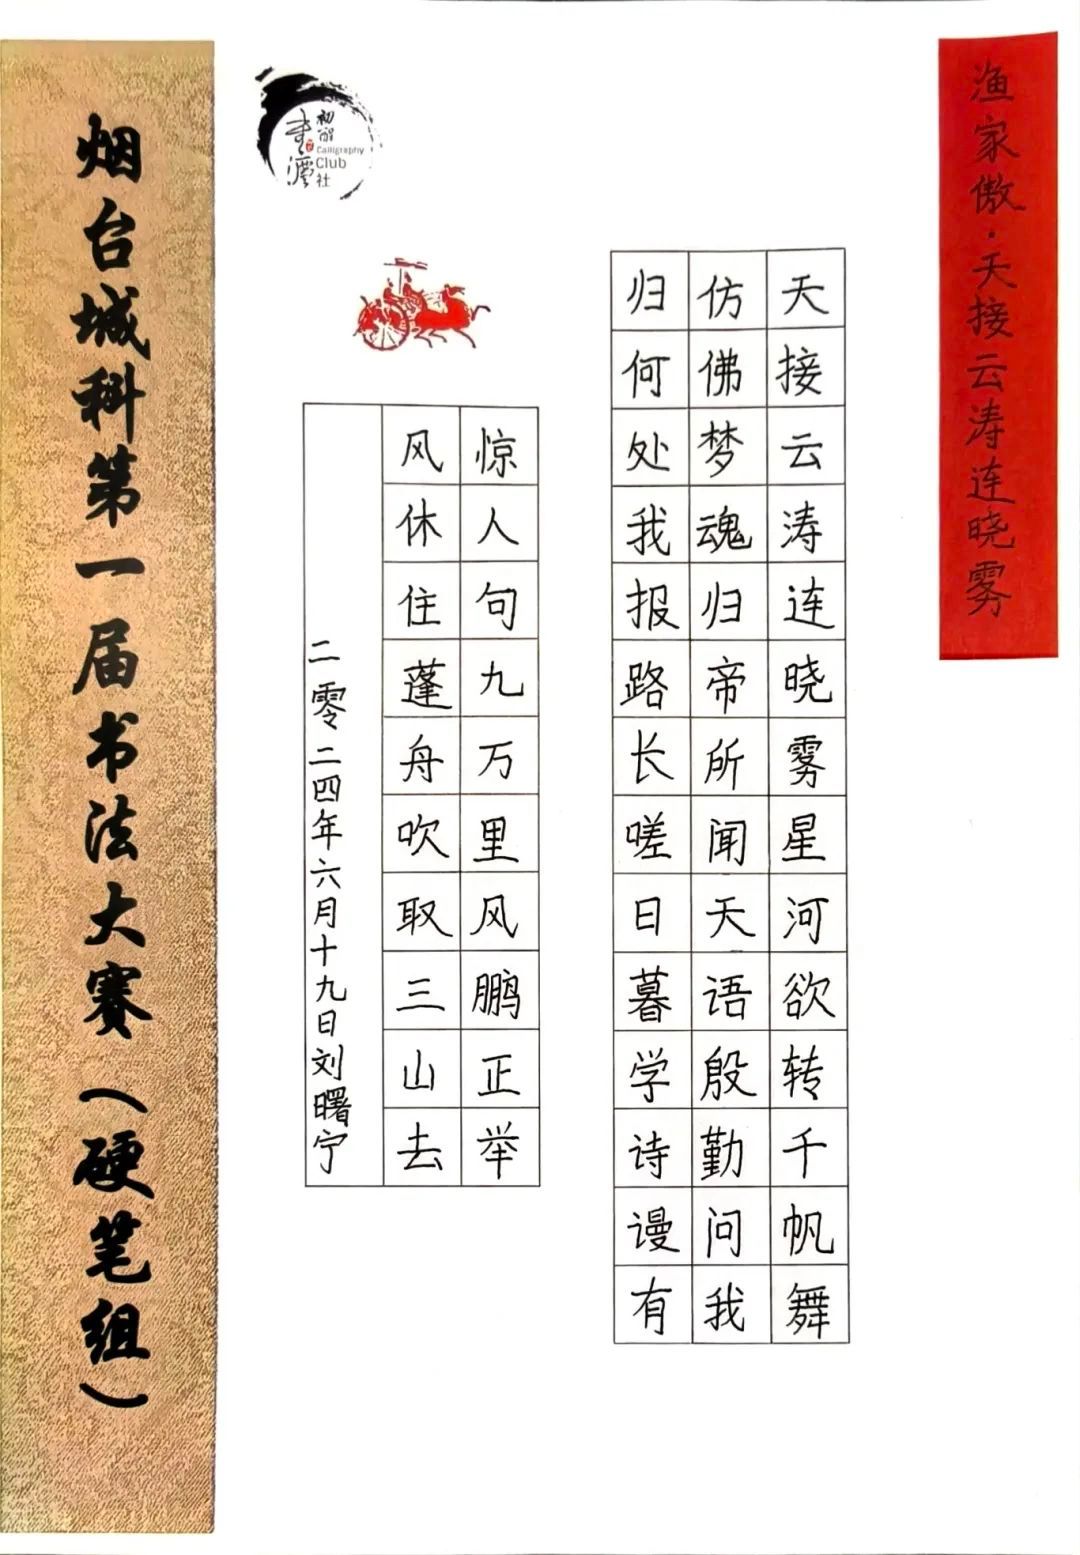 渔家傲·天接云涛连晓雾
天接云涛连晓雾星河欲转千帆舞
仿佛梦魂归帝所闻天语殷勤问我
归何处我报路长嗟日暮学诗谩有
惊人句九万里风鹏正举
风休住蓬舟吹取三山去
二零二四年六月十九日刘曙宁
Calligraphy
Club
社
烟台城科第一届书法大赛（硬笔组）